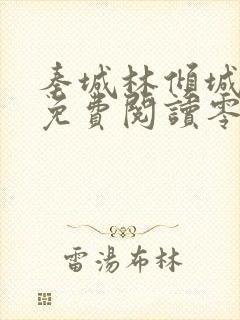 秦城林傾城
免費閱讀零
雷湯布林